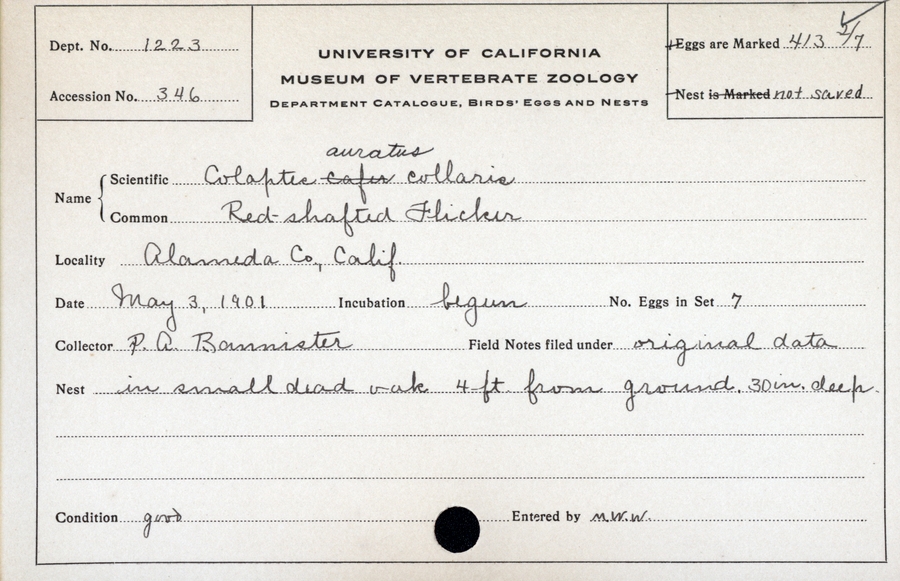 Dept. No. 1223
Accession No. 346
UNIVERSITY OF CALIFORNIA
MUSEUM OF VERTEBRATE ZOOLOGY
DEPARTMENT CATALOGUE, BIRDS' EGGS AND NESTS
Eggs are Marked 413 2/7
Nest is Marked not saved
auratus
Name { Scientific Colaptes cafer collaris
Common Red-shafted Flicker
Locality Alameda Co., Calif
Date May 3, 1901 Incubation begun No. Eggs in Set 7
Collector P. A. Bannister Field Notes filed under original data
Nest in small dead oak 4 ft from ground. 30 in. deep.
Condition good Entered by M.W.W.